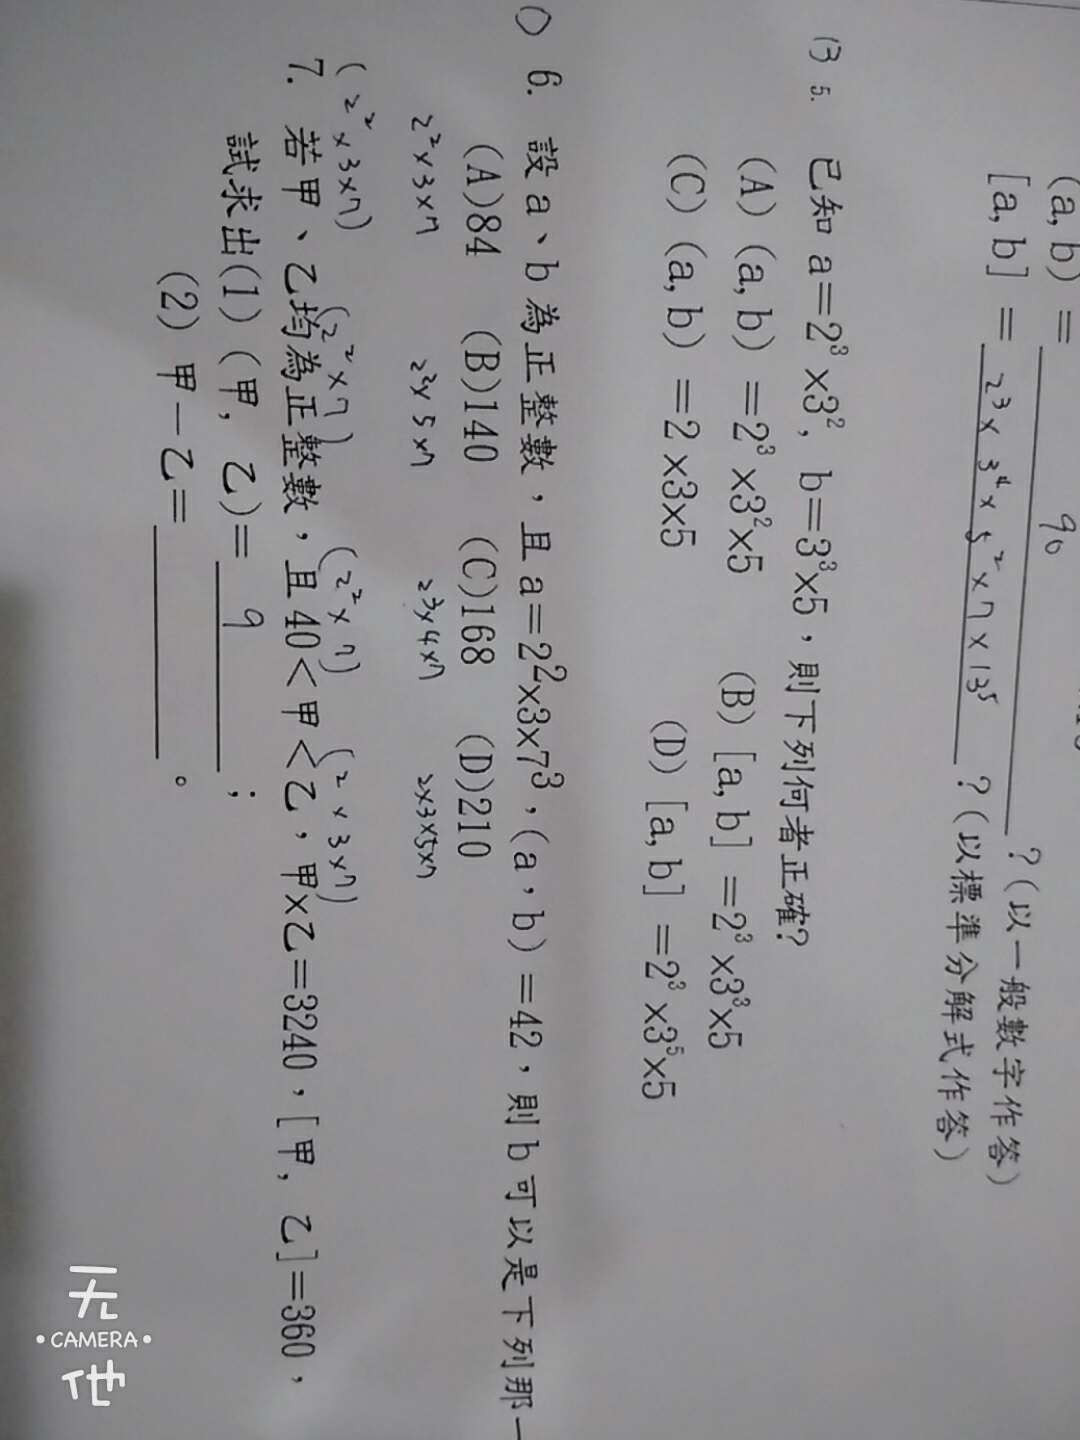 (a, b) = 90 ?(以一般數字作答)
[a, b] = 2³×3⁴×5²×7×13⁵ ?(以標準分解式作答)
B 5. 已知 a=2³×3², b=3³×5,則下列何者正確?
(A) (a, b) =2³×3²×5 (B) [a, b] =2³×3³×5
(C) (a, b) =2×3×5 (D) [a, b] =2³×3⁵×5
D 6. 設 a、b 為正整數,且 a=2²×3×7³,(a,b)=42,則 b 可以是下列那一
(A)84 (B)140 (C)168 (D)210
2²×3×7 2²×5×7 2³×4×7 2×3×5×7
(2²×3×7) (2²×7) (2²×7) (2×3×7)
7. 若甲、乙均為正整數,且 40<甲<乙,甲×乙=3240,[甲, 乙]=360,
試求出(1) (甲, 乙)= 9 ;
(2) 甲-乙= 。
无
•CAMERA•
他